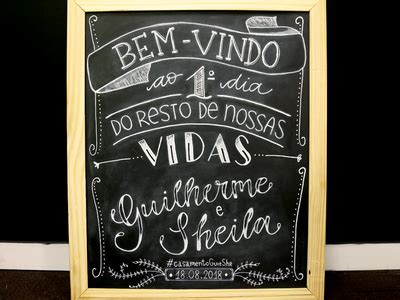 BEM-VINDO
ao 1º dia
DO RESTO DE NOSSAS
VIDAS
Guilherme
e
Sheila
#casamentoGuieShe
18.08.2018